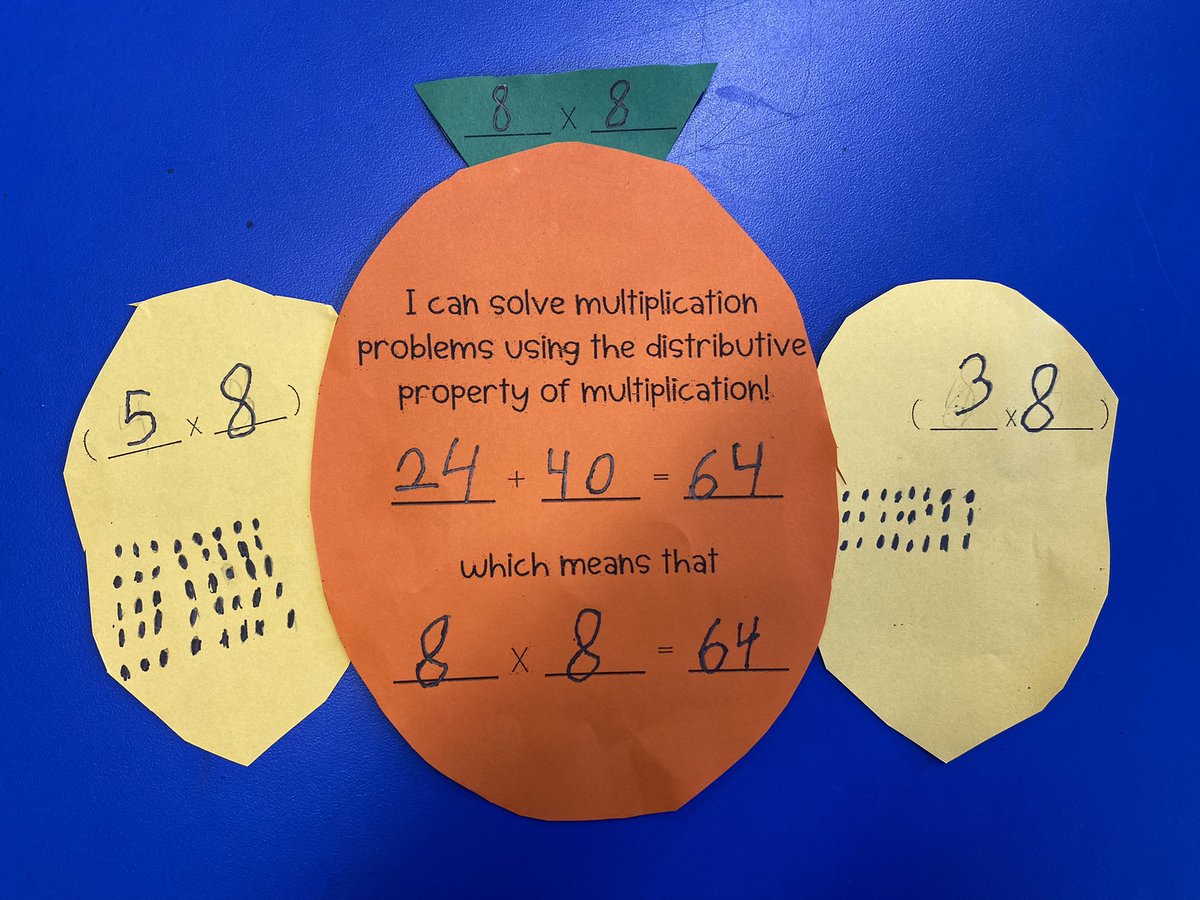 8 x 8
I can solve multiplication
problems using the distributive
property of multiplication!
24 + 40 = 64
which means that
8 x 8 = 64
( 5 x 8 )
( 3 x 8 )